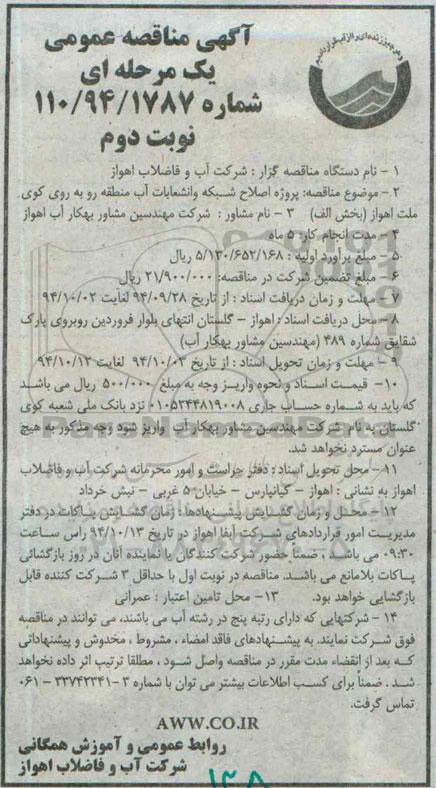 وهرچیز زنده‌ای را از آب قرار دادیم
آگهی مناقصه عمومی
یک مرحله ای
شماره ۱۱۰/۹۴/۱۷۸۷
نوبت دوم
۱ - نام دستگاه مناقصه گزار : شرکت آب و فاضلاب اهواز
۲ - موضوع مناقصه: پروژه اصلاح شبکه وانشعابات آب منطقه رو به روی کوی
ملت اهواز (بخش الف) ۳ - نام مشاور : شرکت مهندسین مشاور بهکار آب اهواز
۴ - مدت انجام کار: ۵ ماه
۵- مبلغ برآورد اولیه : ۵/۱۳۰/۶۵۲/۱۶۸ ریال
۶- مبلغ تضمین شرکت در مناقصه: ۲۱/۹۰۰/۰۰۰ ریال
۷ - مهلت و زمان دریافت اسناد : از تاریخ ۹۴/۰۹/۲۸ لغایت ۹۴/۱۰/۰۲
۸ - محل دریافت اسناد : اهواز - گلستان انتهای بلوار فروردین روبروی پارک
شقایق شماره ۴۸۹ (مهندسین مشاور بهکار آب)
۹ - مهلت و زمان تحویل اسناد : از تاریخ ۹۴/۱۰/۰۳ لغایت ۹۴/۱۰/۱۲
۱۰- قیمت اسناد و نحوه واریز وجه به مبلغ ۵۰۰/۰۰۰ ریال می باشد
که باید به شماره حساب جاری ۰۱۰۵۳۴۴۸۱۹۰۰۸ نزد بانک ملی شعبه کوی
گلستان به نام شرکت مهندسین مشاور بهکار آب واریز شود وجه مذکور به هیچ
عنوان مسترد نخواهد شد.
۱۱ - محل تحویل اسناد : دفتر حراست و امور محرمانه شرکت آب و فاضلاب
اهواز به نشانی : اهواز - کیانپارس - خیابان ۵ غربی - نبش خرداد
۱۲ - محل و زمان گشایش پیشنهادها: زمان گشایش پاکات در دفتر
مدیریت امور قراردادهای شرکت آبفا اهواز در تاریخ ۹۴/۱۰/۱۳ راس ساعت
۰۹:۳۰ می باشد . ضمناً حضور شرکت کنندگان یا نماینده آنان در روز بازگشائی
پاکات بلامانع می باشد. مناقصه در نوبت اول با حداقل ۳ شرکت کننده قابل
بازگشایی خواهد بود. ۱۳- محل تامین اعتبار : عمرانی
۱۴ - شرکتهایی که دارای رتبه پنج در رشته آب می باشند، می توانند در مناقصه
فوق شرکت نمایند. به پیشنهادهای فاقد امضاء ، مشروط ، مخدوش و پیشنهاداتی
که بعد از انقضاء مدت مقرر در مناقصه واصل شود ، مطلقا ترتیب اثر داده نخواهد
شد . ضمناً برای کسب اطلاعات بیشتر می توان با شماره ۳ -۳۳۷۴۲۳۴۱ - ۰۶۱
تماس گرفت.
AWW.CO.IR
روابط عمومی و آموزش همگانی
شرکت آب و فاضلاب اهواز
۱۲۸